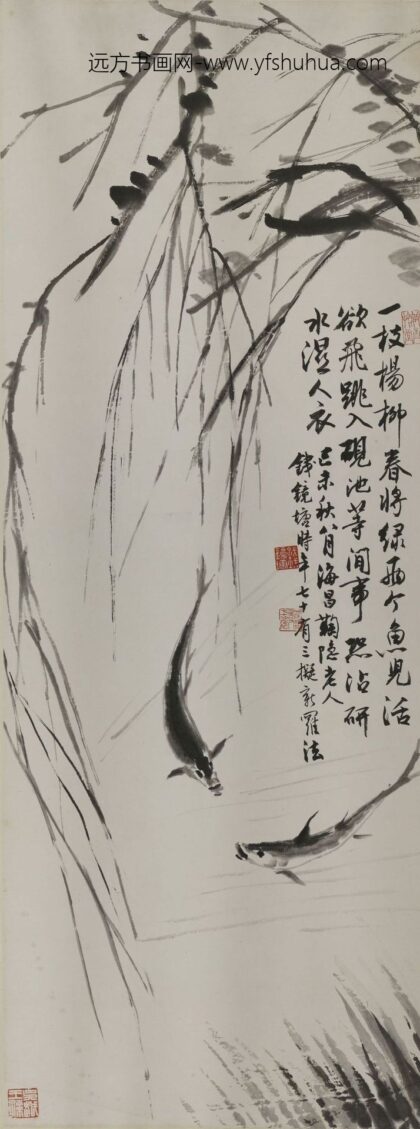 远方书画网-www.yfshuhua.com
一枝楊柳春將綠兩个魚兒活
欲飛跳入硯池等閒事恐沾研
水濕人衣 己未秋八月海昌鞠隐老人
錢鏡塘時年七十有三擬新羅法